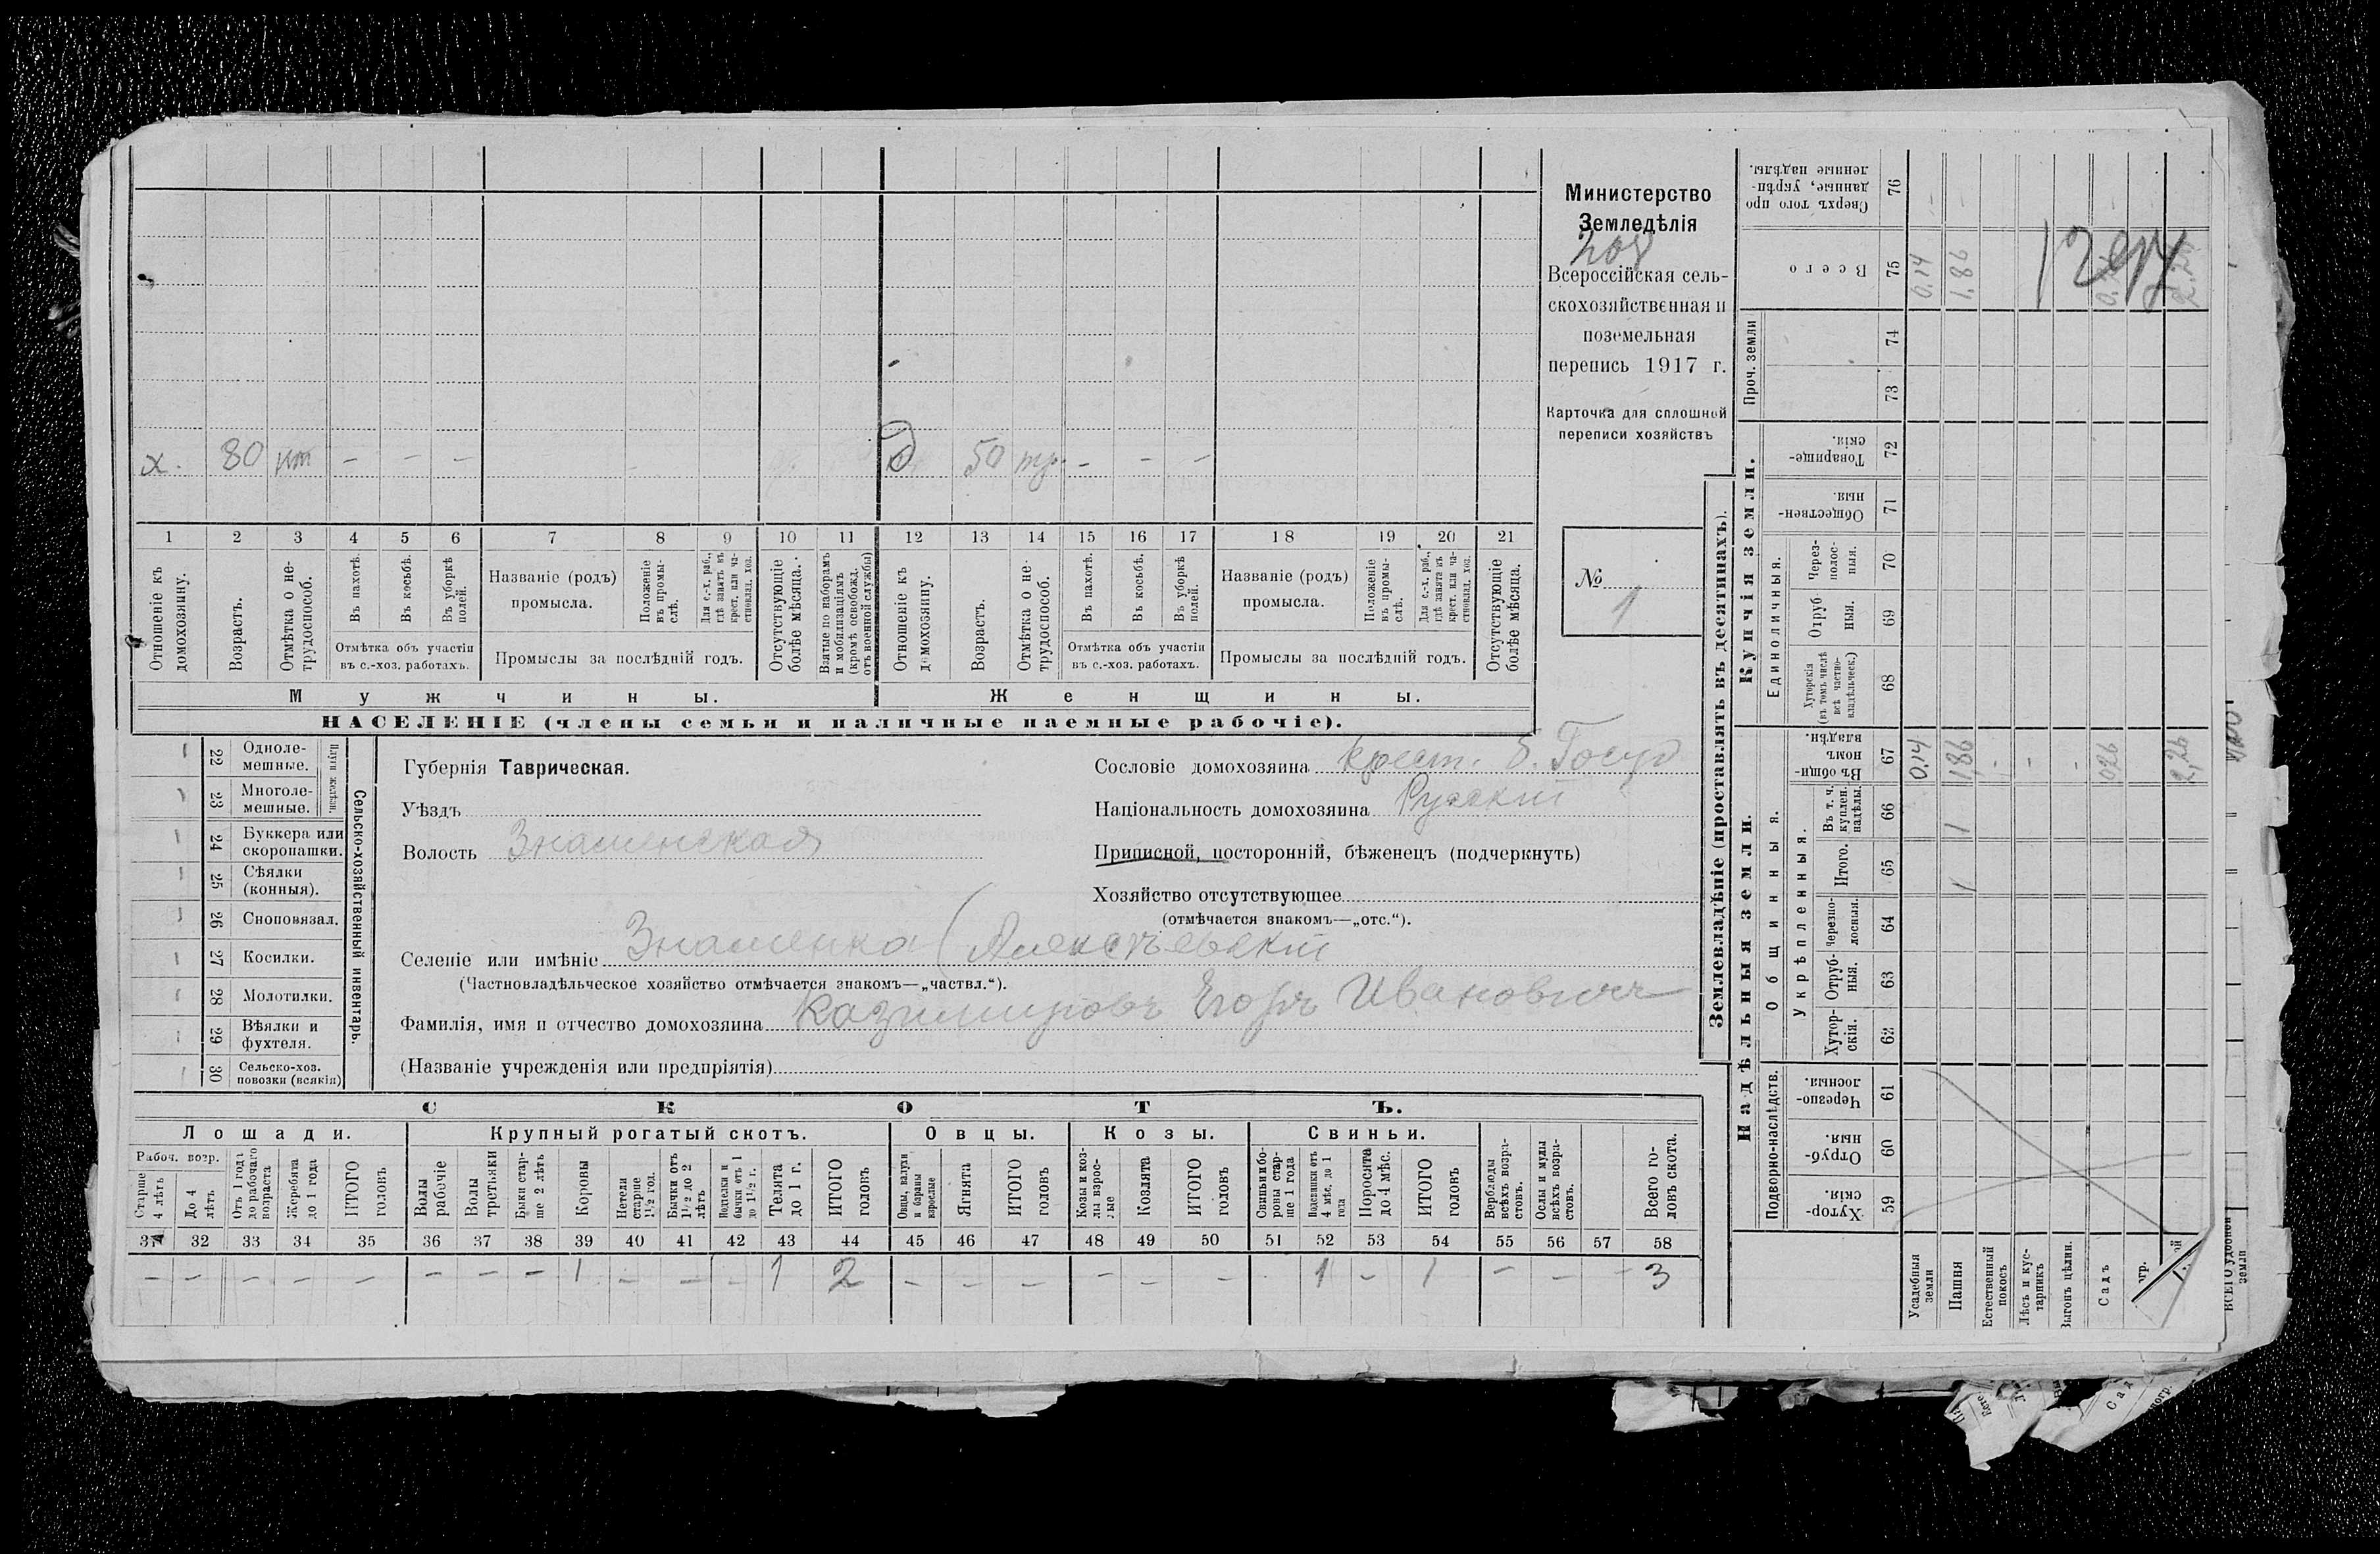 Министерство
Земледѣлія
208
Всероссійская сель-
скохозяйственная и
поземельная
перепись 1917 г.
Карточка для сплошной
переписи хозяйствъ
№
1
х. 80 нт — — —
Д 50 тр. — — —
1 2 3 4 5 6 7 8 9 10 11 12 13 14 15 16 17 18 19 20 21
Отношеніе къ домохозяину.
Возрастъ.
Отмѣтка о не-трудоспособ.
Въ пахотѣ.
Въ косьбѣ.
Въ уборкѣ полей.
Отмѣтка объ участіи
въ с.-хоз. работахъ.
Названіе (родъ)
промысла.
Положеніе въ промы-слѣ.
Для с.-х. раб., гдѣ занятъ въ крест. или ча-стновлад. хоз.
Промыслы за послѣдній годъ.
Отсутствующіе болѣе мѣсяца.
Взятые по наборамъ и мобилизаціямъ (кромѣ освобожд. отъ военной службы)
Отношеніе къ домохозяину.
Возрастъ.
Отмѣтка о не-трудоспособ.
Въ пахотѣ.
Въ косьбѣ.
Въ уборкѣ полей.
Отмѣтка объ участіи
въ с.-хоз. работахъ.
Названіе (родъ)
промысла.
Положеніе въ промы-слѣ.
Для с.-х. раб., гдѣ занята въ крест. или ча-стновлад. хоз.
Промыслы за послѣдній годъ.
Отсутствующіе болѣе мѣсяца.
Мужчины.
Женщины.
НАСЕЛЕНІЕ (члены семьи и наличные наемные рабочіе).
22 Одноле-мешные.
23 Многоле-мешные.
24 Буккера или скоропашки.
25 Сѣялки (конныя).
26 Сноповязал.
27 Косилки.
28 Молотилки.
29 Вѣялки и фухтеля.
30 Сельско-хоз. повозки (всякія)
Сельско-хозяйственный инвентарь.
Губернія Таврическая.
Уѣздъ
Волость Знаменская
Сословіе домохозяина крест. б. Госуд
Національность домохозяина Русскій
Приписной, посторонній, бѣженецъ (подчеркнуть)
Хозяйство отсутствующее
(отмѣчается знакомъ—„отс.“).
Селеніе или имѣніе Знаменка (Алексѣевскій
(Частновладѣльческое хозяйство отмѣчается знакомъ—„частвл.“).
Фамилія, имя и отчество домохозяина Казимировъ Егоръ Ивановичъ
(Названіе учрежденія или предпріятія)
СКОТЪ.
Лошади. Крупный рогатый скотъ. Овцы. Козы. Свиньи.
Рабоч. возр.
Старше 4 лѣтъ
До 4 лѣтъ
Отъ 1 года до рабочаго возраста
Жеребята до 1 года
ИТОГО головъ
Волы рабочіе
Волы третьяки
Быки стар-ше 2 лѣтъ
Коровы
Нетели старше 1½ год.
Бычки отъ 1½ до 2 лѣтъ
Подтелки и бычки отъ 1 до 1½ г.
Телята до 1 г.
ИТОГО головъ
Овцы, валухи и бараны взрослые
Ягнята
ИТОГО головъ
Козы и коз-лы взрос-лые
Козлята
ИТОГО головъ
Свиньи и бо-ровы стар-ше 1 года
Подсвинки отъ 4 мѣс. до 1 года
Поросята до 4 мѣс.
ИТОГО головъ
Верблюды всѣхъ возра-стовъ.
Ослы и мулы всѣхъ возра-стовъ.
Всего го-ловъ скота.
31 32 33 34 35 36 37 38 39 40 41 42 43 44 45 46 47 48 49 50 51 52 53 54 55 56 57 58
— — — — — — — — 1 — — — 1 2 — — — — — — 1 — 1 — — — 3
Землевладѣніе (проставлять въ десятинахъ).
Купчія земли.
Надѣльныя земли.
Сверхъ того про данные, укрѣп-ленные надѣлы. 76
Всего 75 0,14 1,86
Проч. земли 74 73
Товарище-скія. 72
Обществен-ныя. 71
Единоличныя.
Через-полос-ныя. 70
Отруб ныя. 69
Хуторскія (въ томъ числѣ всѣ частно-владѣльческ.) 68
Общинныя.
Въ общи-номъ владѣн. 67 0,14 1,86 0,26 2,26
Укрѣпленныя.
Въ т. ч. куплен. надѣлы. 66
Итого. 65
Черезпо-лосныя. 64
Отруб-ныя. 63
Хутор-скія. 62
Подворно-наслѣдств.
Черезпо-лосныя. 61
Отруб-ныя. 60
Хутор-скія. 59
Усадебныя земли
Пашня
Естественный покосъ
Лѣсъ и кус-тарникъ
Выгонъ цѣлин.
Садъ
ВСЕГО удобной земли